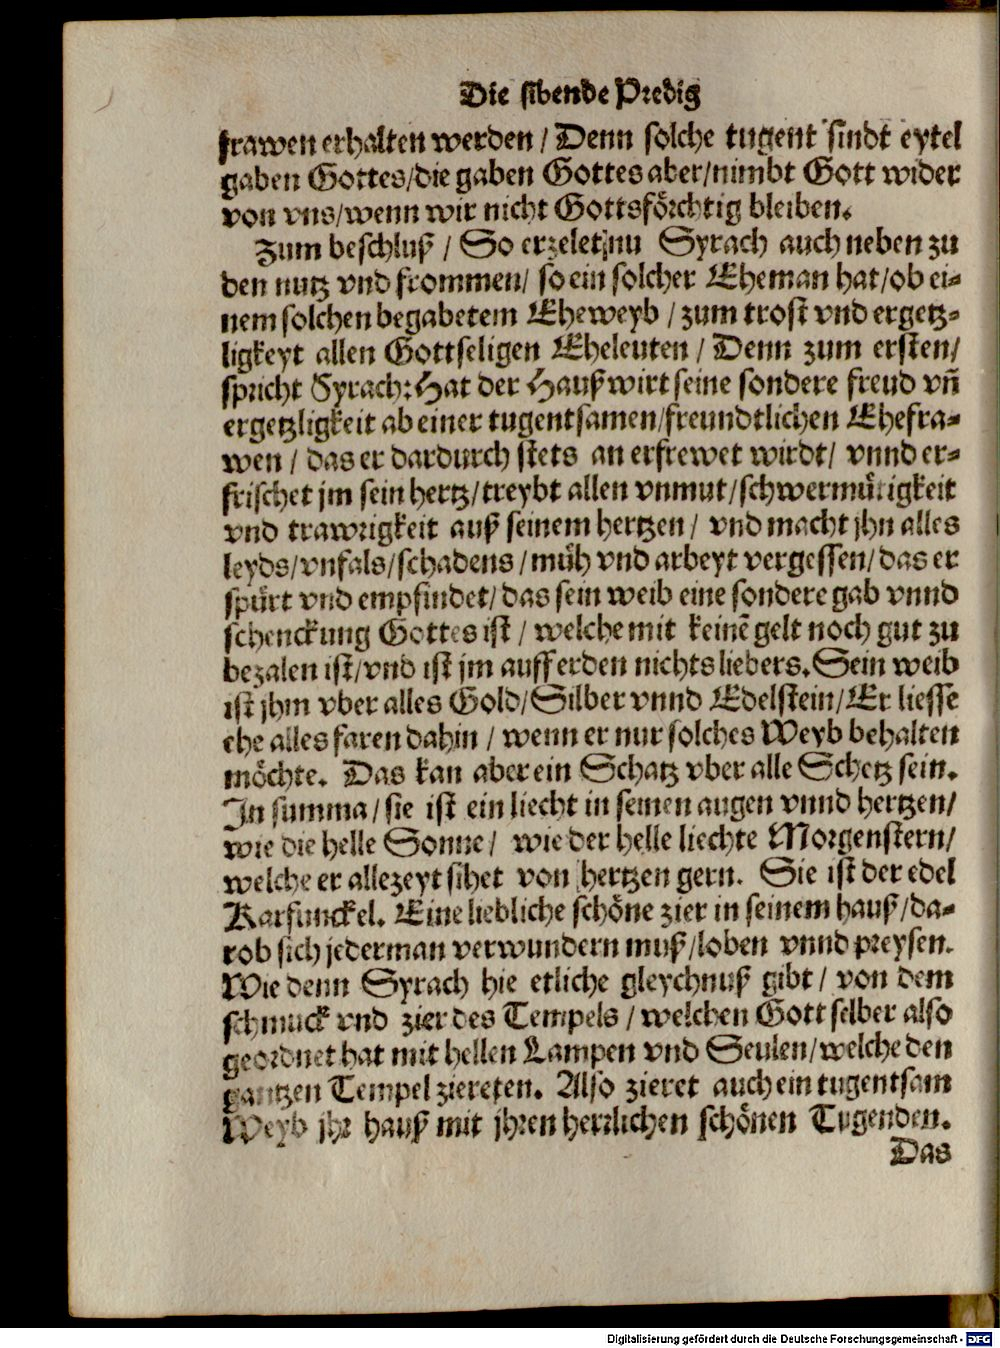 Die sibende Predig
frawen erhalten werden / Denn solche tugent sindt eytel
gaben Gottes/die gaben Gottes aber/nimbt Gott wider
von vns/wenn wir nicht Gottsförchtig bleiben.
Zum beschluß / So erzelet nu Syrach auch neben zu
den nutz vnd frommen/ so ein solcher Eheman hat/ob ei-
nem solchen begabetem Eheweyb / zum trost vnd ergetz-
ligkeyt allen Gottseligen Eheleuten / Denn zum ersten/
spricht Syrach: Hat der Haußwirt seine sondere freud vñ
ergetzligkeit ab einer tugentsamen/freundtlichen Ehefra-
wen / das er dardurch stets an erfrewet wirdt/ vnnd er-
frischet jm sein hertz/treybt allen vnmut/schwermütigkeit
vnd trawrigkeit auß seinem hertzen / vnd macht jhn alles
leyds/vnfals/schadens / müh vnd arbeyt vergessen/das er
spürt vnd empfindet/das sein weib eine sondere gab vnnd
schenckung Gottes ist / welche mit keinē gelt noch gut zu
bezalen ist/vnd ist jm auff erden nichts liebers. Sein weib
ist jhm vber alles Gold/Silber vnnd Edelstein/Er liesse
ehe alles faren dahin / wenn er nur solches Weyb behalten
möchte. Das kan aber ein Schatz vber alle Schetz sein.
In summa/sie ist ein liecht in seinen augen vnnd hertzen/
wie die helle Sonne/ wie der helle liechte Morgenstern/
welche er allezeyt sihet von hertzen gern. Sie ist der edel
Karfunckel. Eine liebliche schöne zier in seinem hauß/da-
rob sich jederman verwundern muß/loben vnnd preysen.
Wie denn Syrach hie etliche gleychnuß gibt / von dem
schmuck vnd zier des Tempels / welchen Gott selber also
geordnet hat mit hellen Lampen vnd Seulen/welche den
gantzen Tempel ziereten. Also zieret auch ein tugentsam
Weyb jhr hauß mit jhren herrlichen schönen Tugenden.
Das
Digitalisierung gefördert durch die Deutsche Forschungsgemeinschaft - DFG